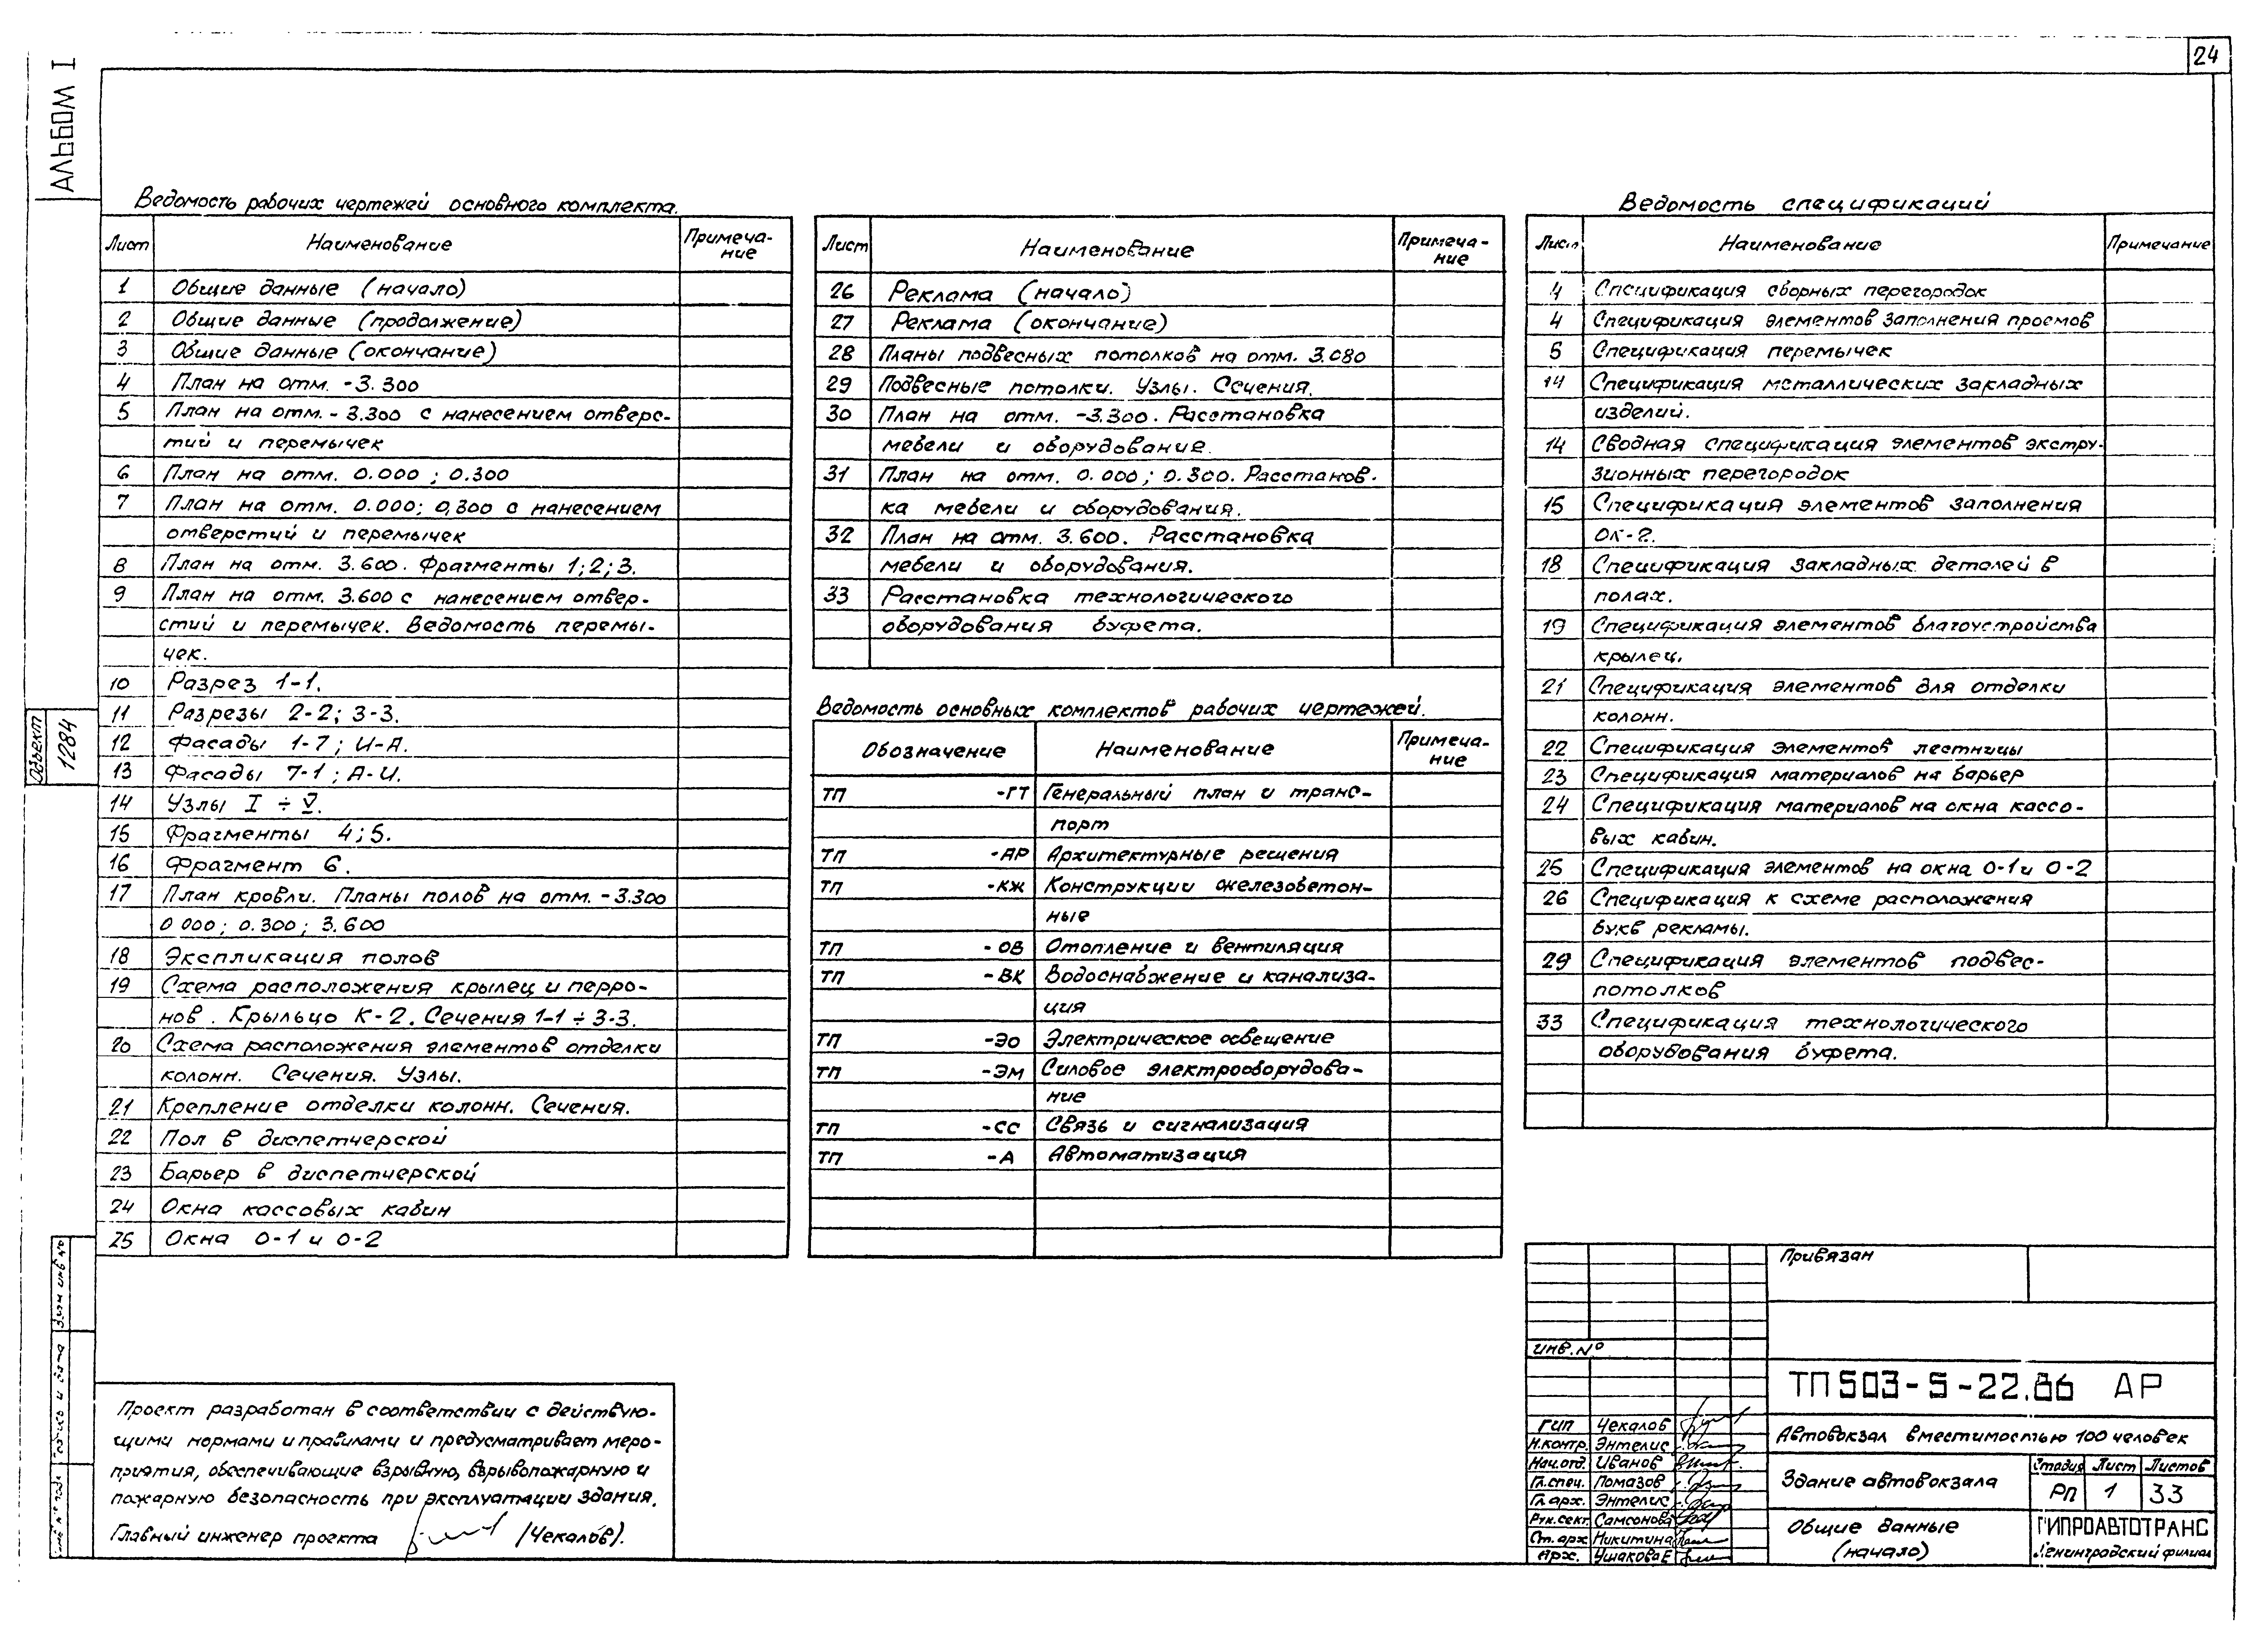 24
АЛЬБОМ I
Ведомость рабочих чертежей основного комплекта.
Лист Наименование Примеча-
ние
1 Общие данные (начало)
2 Общие данные (продолжение)
3 Общие данные (окончание)
4 План на отм. -3.300
5 План на отм. -3.300 с нанесением отверс-
тий и перемычек
6 План на отм. 0.000; 0.300
7 План на отм. 0.000; 0,300 с нанесением
отверстий и перемычек
8 План на отм. 3.600. Фрагменты 1; 2; 3.
9 План на отм. 3.600 с нанесением отвер-
стий и перемычек. Ведомость перемы-
чек.
10 Разрез 1-1.
11 Разрезы 2-2; 3-3.
12 Фасады 1-7; И-А.
13 Фасады 7-1; А-И.
14 Узлы I ÷ V.
15 Фрагменты 4; 5.
16 Фрагмент 6.
17 План кровли. Планы полов на отм. -3.300
0 000; 0.300; 3.600
18 Экспликация полов
19 Схема расположения крылец и перро-
нов. Крыльцо К-2. Сечения 1-1 ÷ 3-3.
20 Схема расположения элементов отделки
колонн. Сечения. Узлы.
21 Крепление отделки колонн. Сечения.
22 Пол в диспетчерской
23 Барьер в диспетчерской
24 Окна кассовых кабин
25 Окна О-1 и О-2
Лист Наименование Примеча-
ние
26 Реклама (начало)
27 Реклама (окончание)
28 Планы подвесных потолков на отм. 3.080
29 Подвесные потолки. Узлы. Сечения.
30 План на отм. -3.300. Расстановка
мебели и оборудование.
31 План на отм. 0.000; 0.300. Расстанов-
ка мебели и оборудования.
32 План на отм. 3.600. Расстановка
мебели и оборудования.
33 Расстановка технологического
оборудования буфета.
Ведомость основных комплектов рабочих чертежей.
Обозначение Наименование Примеча-
ние
ТП -ГТ Генеральный план и транс-
порт
ТП -АР Архитектурные решения
ТП -КЖ Конструкции железобетон-
ные
ТП -ОВ Отопление и вентиляция
ТП -ВК Водоснабжение и канализа-
ция
ТП -ЭО Электрическое освещение
ТП -ЭМ Силовое электрооборудова-
ние
ТП -СС Связь и сигнализация
ТП -А Автоматизация
Ведомость спецификаций
Лист Наименование Примечание
4 Спецификация сборных перегородок
4 Спецификация элементов заполнения проемов
5 Спецификация перемычек
14 Спецификация металлических закладных
изделий.
14 Сводная спецификация элементов экстру-
зионных перегородок
15 Спецификация элементов заполнения
ОК-2.
18 Спецификация закладных деталей в
полах.
19 Спецификация элементов благоустройства
крылец.
21 Спецификация элементов для отделки
колонн.
22 Спецификация элементов лестницы
23 Спецификация материалов на барьер
24 Спецификация материалов на окна кассо-
вых кабин.
25 Спецификация элементов на окна О-1 и О-2
26 Спецификация к схеме расположения
букв рекламы.
29 Спецификация элементов подвес-
потолков
33 Спецификация технологического
оборудования буфета.
Объект
1284
Проект разработан в соответствии с действую-
щими нормами и правилами и предусматривает меро-
приятия, обеспечивающие взрывную, взрывопожарную и
пожарную безопасность при эксплуатации здания.
Главный инженер проекта (Чекалов).
Привязан
инв. №
ТП 503-5-22.86 АР
ГИП Чекалов
Н.контр. Энтелис
Нач.отд. Иванов
Гл.спец. Помазов
Гл.арх. Энтелис
Рук.сект. Самсонова
Ст.арх Никитина
Арх. Ушакова Е
Автовокзал вместимостью 100 человек
Здание автовокзала
Стадия Лист Листов
РП 1 33
Общие данные
(начало)
ГИПРОАВТОТРАНС
Ленинградский филиал